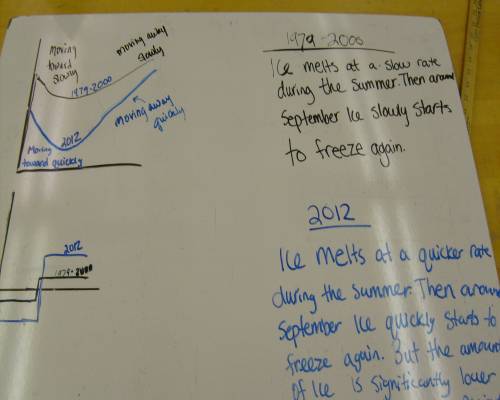 Moving
toward
slowly
moving away
slowly
1979-2000
moving away
quickly
2012
Moving
toward quickly
2012
1979-2000
1979-2000
Ice melts at a slow rate
during the summer. Then around
September Ice slowly starts
to freeze again.
2012
Ice melts at a quicker rate
during the summer. Then around
September Ice quickly starts to
freeze again. But the amount
of Ice is significantly lower